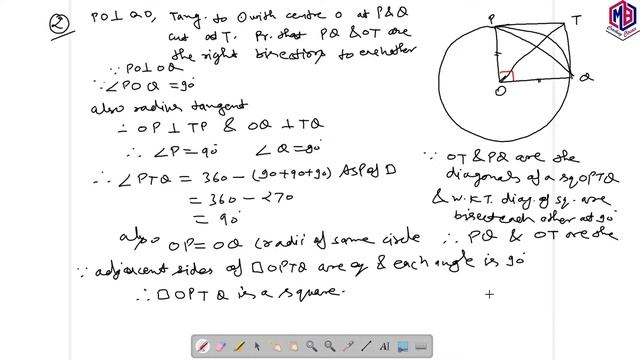 ② PO⊥QO, Tang. to O with centre O at P&Q
cut at T. Pr. that PQ & OT are
the right bisectors to eachother
∵ PO⊥OQ
∵ ∠POQ = 90°
also radius tangent
∴ OP ⊥ TP & OQ ⊥ TQ
∴ ∠P = 90° ∠Q = 90°
∴ ∠PTQ = 360 - (90+90+90) ASP of □
= 360 - 270
= 90°
also OP = OQ (radii of same circle
∵ adjacent sides of □OPTQ are eq & each angle is 90°
∴ □OPTQ is a square.
P T
O Q
∵ OT & PQ are the
diagonals of a sq OPTQ
& W.K.T. diag. of sq. are
bisect each other at 90°
∴ PQ & OT are the
MB